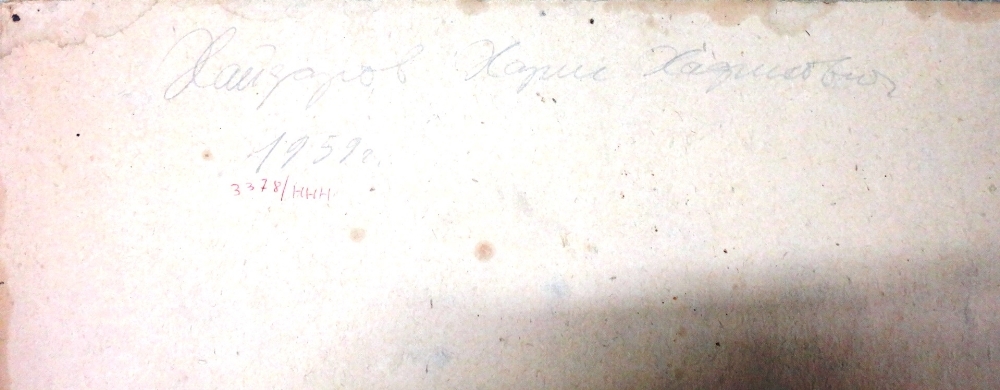 Хайдаров Харис
1959г.
3378/ННН